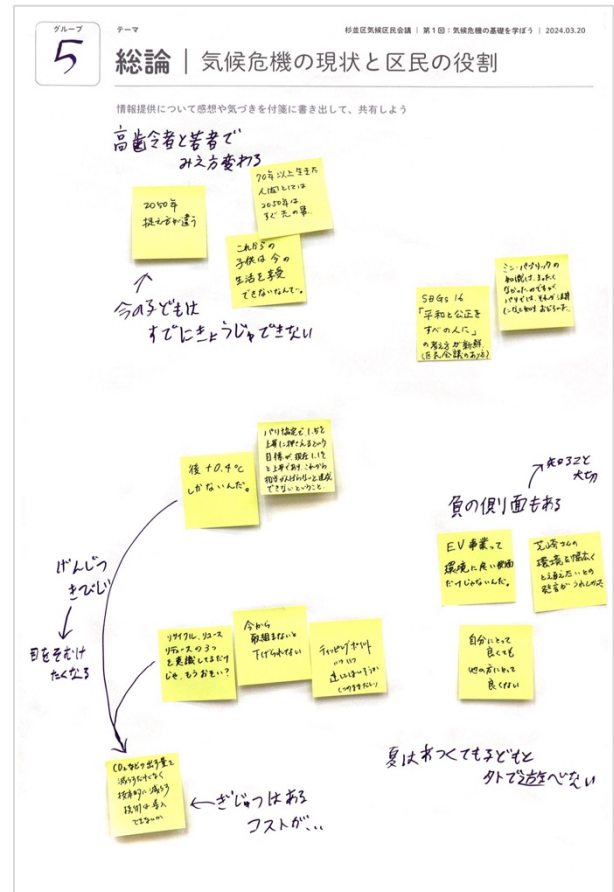 グループ
5
テーマ
杉並区気候区民会議 | 第1回:気候危機の基礎を学ぼう | 2024.03.20
総論 | 気候危機の現状と区民の役割
情報提供について感想や気づきを付箋に書き出して、共有しよう
高齢者と若者で
みえ方変わる
2050年
捉え方が違う
70年以上生きた
人(国)としては
2050年は、
すぐ先の事。
これからの
子供は今の
生活を享受
できないなんて…
今の子どもは
すでにきょうじゅできない
ミニ・パブリックの
知識は、まったく
なかったのですが
パリでは、それが
SDGs 16
「平和と公正を
すべての人に」
の考え方が新鮮
(区民会議のあり方)
後 +0.4℃
しかないんだ。
パリ協定で1.5℃
上昇に押さえるという
目標が現在1.1℃
と上昇であり、これから
相当がんばらないと達成
できないということ
げんじつ
きびしい
目をそむけ
たくなる
リサイクル、リユース
リデュースの3つ
を意識してるだけ
じゃ、もうおそい?
今から
取組まないと
下げられない
ティッピングポイント
いついつ
CO₂などの出す量を
減らすだけでなく
技術的に減らす
技術は導入
できないか
ぎじゅつはある
コストが…
知ること
大切
負の側面もある
EV事業って
環境に良い側面
だけじゃないんだ。
芝崎さんの
環境を幅広く
とらえたいとの
発言がうれしかった
自分にとって
良くても
他の方にとって
良くない
夏はあつくて子どもと
外で遊べない